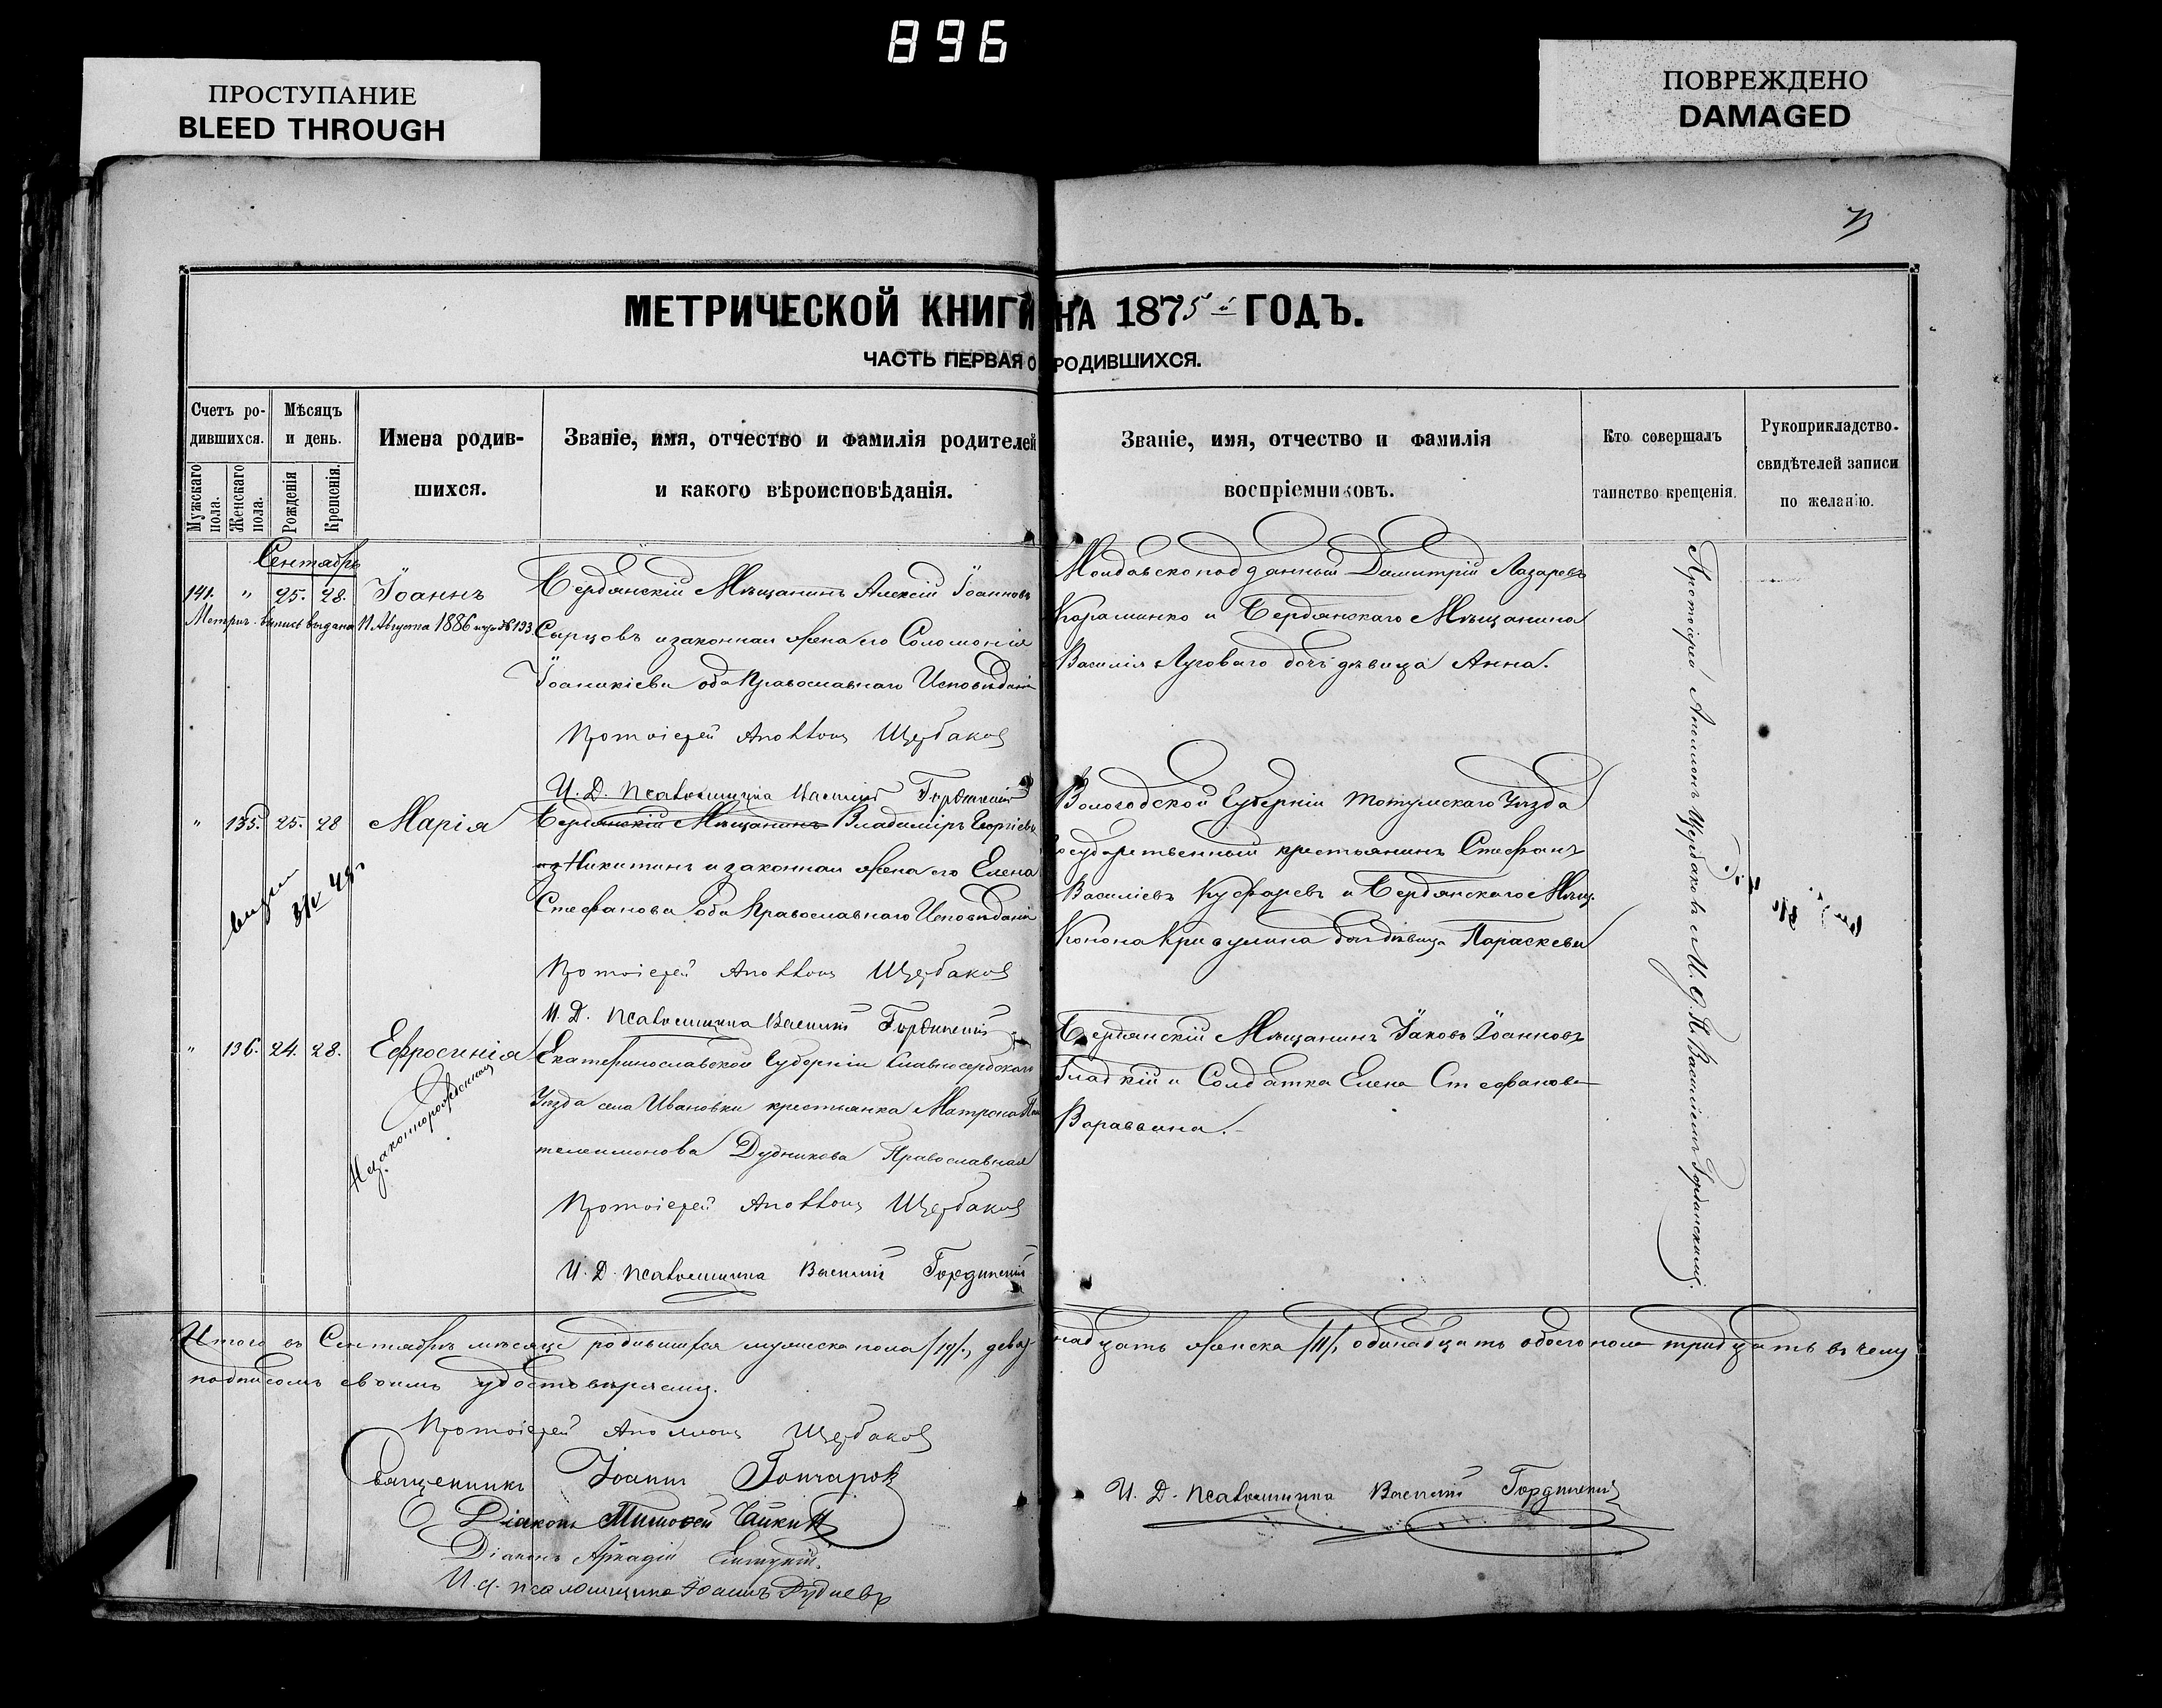 896
ПРОСТУПАНИЕ
BLEED THROUGH
ПОВРЕЖДЕНО
DAMAGED
МЕТРИЧЕСКОЙ КНИГИ НА 1875 й ГОДЪ.
ЧАСТЬ ПЕРВАЯ О РОДИВШИХСЯ.
Счетъ ро-
дившихся.
Мужскаго пола.
Женскаго пола.
Мѣсяцъ
и день.
Рожденія
Крещенія.
Имена родив-
шихся.
Званіе, имя, отчество и фамилія родителей
и какого вѣроисповѣданія.
Званіе, имя, отчество и фамилія
воспріемниковъ.
Кто совершалъ
таинство крещенія.
Рукоприкладство
свидѣтелей записи
по желанію.
Сентябрь
141. " 25. 28. Іоаннъ
Метрич. выпись выдана 11 Августа 1886 № 193
Бердянскій Мѣщанинъ Алексій Іоанновъ
Сырцовъ и законная жена его Соломонія
Іоаникіева оба Православнаго Исповѣданія
Протоіерей Аполлонъ Щербаковъ
И. Д. Псаломщика Василий Гординский
Молдавскоподданный Димитрій Лазаревъ
Караминко и Бердянскаго Мѣщанина
Василія Луговаго дочь дѣвица Анна.
" 135. 25. 28 Марія
Бердянскій Мѣщанинъ Владиміръ Георгіевъ
Никитинъ и законная жена его Елена
Стефанова оба Православнаго Исповѣданія
Протоіерей Аполлонъ Щербаковъ
И. Д. Псаломщика Василий Гординский
Вологодской Губерніи Тотумскаго Уѣзда
Государственный крестьянинъ Стефанъ
Василіевъ и Бердянскаго Мѣщ.
Конона дочь дѣвица Параскева
" 136. 24. 28. Ефросинія
Незаконнорожденная
Екатеринославской Губерніи Славяносербскаго
Уѣзда села Ивановки крестьянка Матрона Пан
телеимонова Дудникова Православная
Протоіерей Аполлонъ Щербаковъ
И. Д. Псаломщика Василий Гординский
Бердянскій Мѣщанинъ Іаковъ Іоанновъ
Гладкій и Солдатка Елена Стефанова
Вараввина.
Протоіерей Аполлонъ Щербаковъ с И. Д. П. Василіемъ Гординскимъ.
Итого въ Сентябрѣ мѣсяцѣ родившихся мужеска пола /19/, девят
надцать женска /11/, одинадцать обоего пола тридцать въ чемъ
подписомъ своимъ удостовѣряемъ.
Протоіерей Аполлонъ Щербаковъ
Священникъ Іоаннъ Гончаровъ
Діаконъ Тимофей Чайкинъ
Діаконъ Аркадій
И. д. псаломщика Іоаннъ Рудневъ
И. Д. Псаломщика Василий Гординский